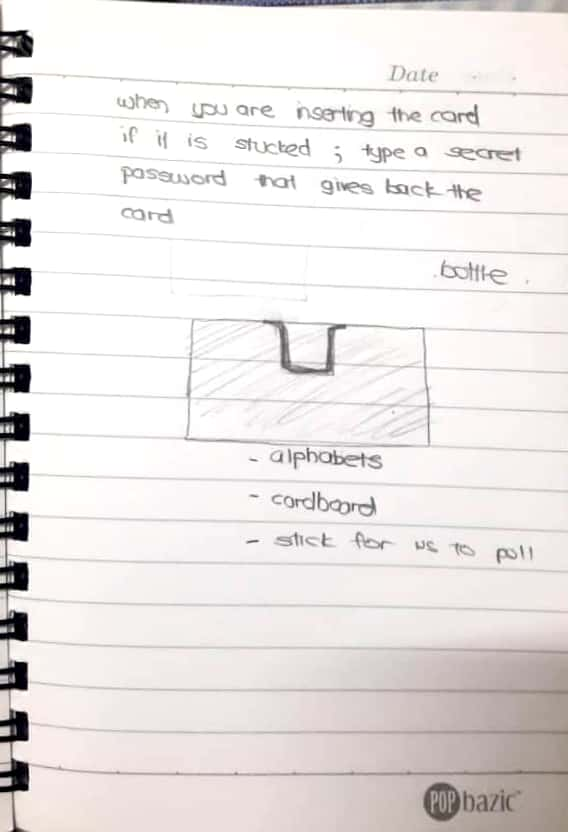 Date
when you are inserting the card
if it is stucked ; type a secret
password that gives back the
card
.bottle .
- alphabets
- cardboard
- stick for us to poll
POP bazic